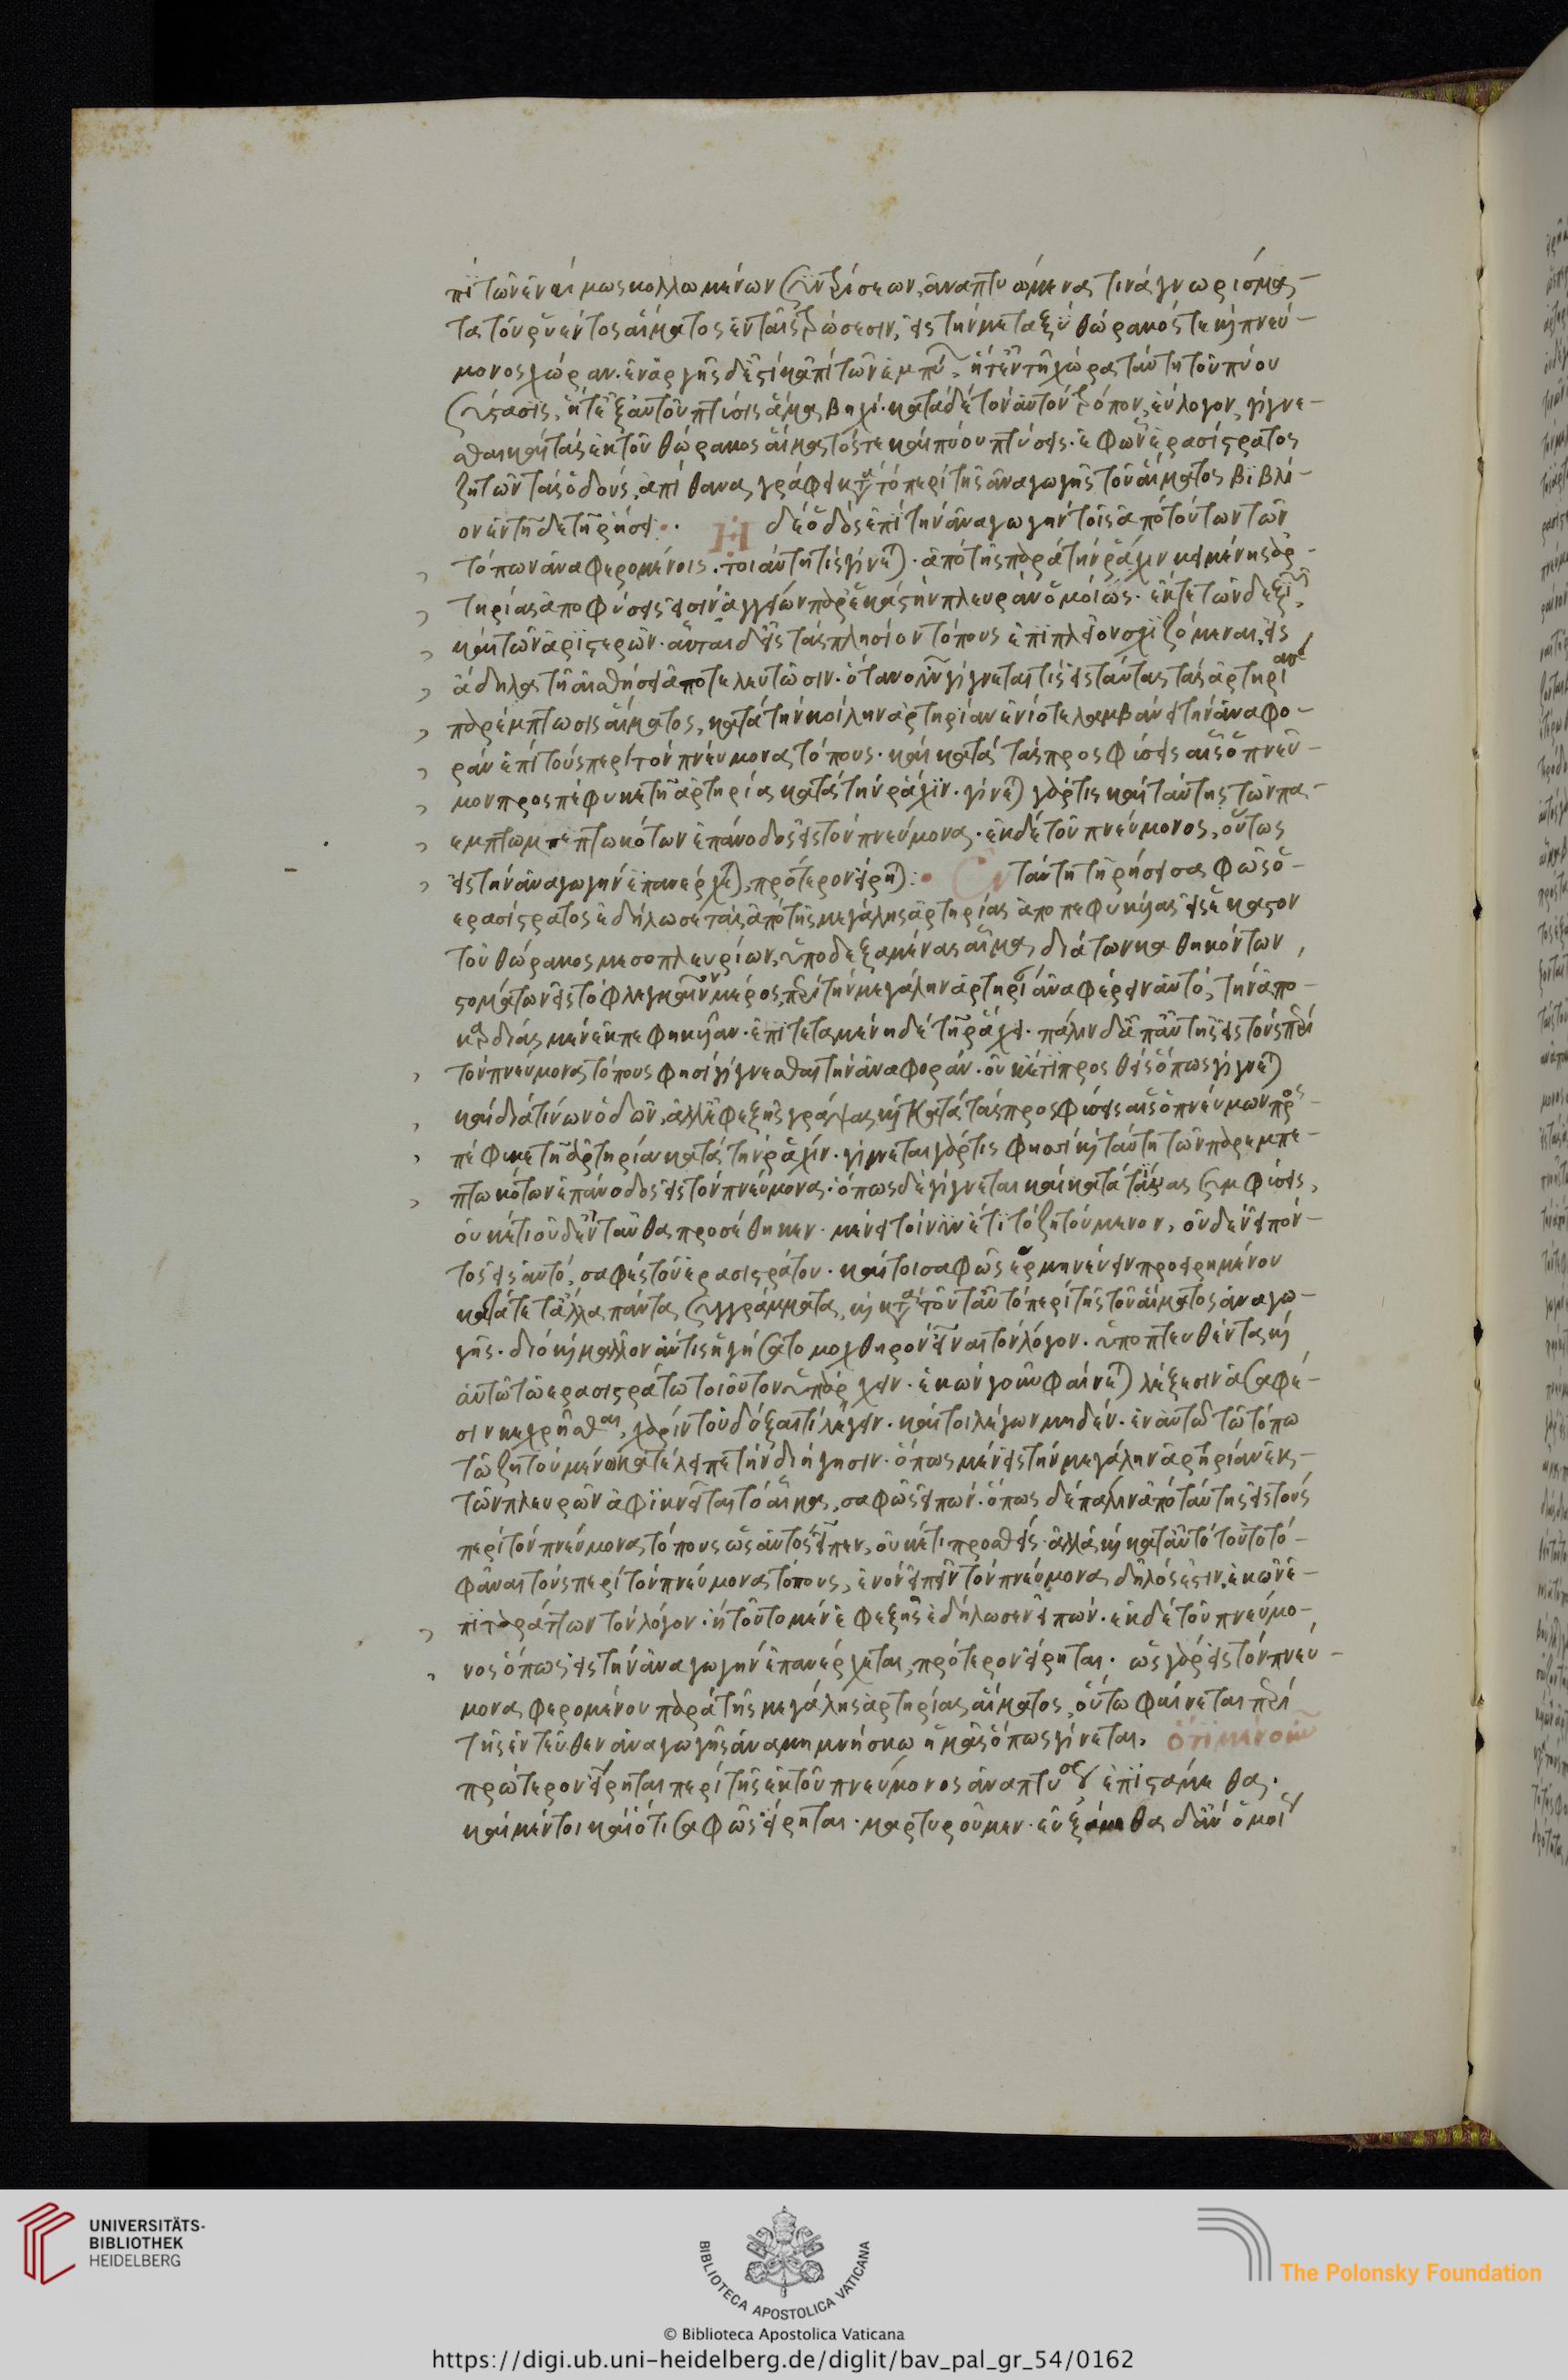 πὶ τῶν ἐναίμως κολλωμένων συντρήσεων, ἀναπτυώμενα τινὰ γνωρίσμα-
τα τοῦ ῥυέντος αἵματος ἐν ταῖς τρώσεσιν, εἰς τὴν μεταξὺ θώρακός τε καὶ πνεύ-
μονος χώραν. ἐναργὴς δέ ἐστι κἀπὶ τῶν ἐμπύων, ἥ τ' ἐν τῇ χώρα ταύτη τοῦ πύου
σύστασις, ἥ τε ἐξ αὐτοῦ πτύσις ἅμα βηχί. κατὰ δὲ τὸν αὐτὸν τρόπον, εὔλογον γίγνε-
σθαι καὶ τὰς ἐκ τοῦ θώρακος αἵματός τε καὶ πύου πτύσεις. ἐφ' ὧν ἐρασίστρατος
ζητῶν τὰς ὁδοὺς, ἀπίθανα γράφει κατὰ τὸ περὶ τῆς ἀναγωγῆς τοῦ αἵματος βιβλί-
ον ἐν τῆδε τῆ ῥήσει.
Ἡ δὲ ὁδὸς ἐπὶ τὴν ἀναγωγὴν τοῖς ἀπὸ τούτων τῶν
τόπων ἀναφερομένοις. τοιαύτη τις γίνεται. ἀπὸ τῆς παρὰ τὴν ῥάχιν κειμένης ἀρ-
τηρίας ἀποφύσεις εἰσὶν ἀγγείων παρ' ἑκάστην πλευρὰν ὁμοίως. ἔκ τε τῶν δεξιῶν
καὶ τῶν ἀριστερῶν. αὗται δ' εἰς τὰς πλησίον τόπους ἐπιπλεῖον σχιζόμεναι, εἰς
ἄδηλα τῆ αἰσθήσει ἀποτελευτῶσιν. ὅταν οὖν γίγνεται τις εἰς ταύτας τὰς ἀρτηρίας
παρέμπτωσις αἵματος, κατὰ τὴν κοίλην ἀρτηρίαν ἐνίοτε λαμβάνει τὴν ἀναφο-
ρὰν ἐπὶ τοὺς περὶ τὸν πνεύμονα τόπους. καὶ κατὰ τὰς προσφύσεις αἷς ὁ πνεύ-
μον προσπέφυκε τῆ ἀρτηρία κατὰ τὴν ῥάχιν. γίνεται γάρ τις καὶ ταύτης τῶν πα-
εμπτωμπεπτωκότων ἐπάνοδος εἰς τὸν πνεύμονα. ἐκ δὲ τοῦ πνεύμονος, οὕτως
εἰς τὴν ἀναγωγὴν ἐπανέρχεται, πρότερον εἴρηται.
Ἐν ταύτη τῆ ῥήσει σαφῶς ὁ
ερασίστρατος ἐδήλωσε τὰς ἀπὸ τῆς μεγάλης ἀρτηρίας ἀποπεφυκυίας εἰς ἕκαστον
τοῦ θώρακος μεσοπλευρίων, ὑποδεξαμένας αἷμα διὰ τῶν καθηκόντων
στομάτων εἰς τὸ φλεγμαῖνον μέρος, ἐπὶ τὴν μεγάλην ἀρτηρίαν ἀναφέρειν αὐτὸ, τὴν ἀπο-
καρδίας μὲν ἐκπεφηκυῖαν. ἐπιτεταμένη δὲ τῆ ῥάχει. πάλιν δ' ἀπ' αὐτῆς εἰς τοὺς περὶ
τὸν πνεύμονα τόπους φησὶ γίγνεσθαι τὴν ἀναφοράν. οὐκέτι προσθεὶς ὅπως γίγνεται
καὶ διὰ τίνων ὁδῶν, ἀλλ' ἐφεξῆς γράψας καὶ κατὰ τὰς προσφύσεις αἷς ὁ πνεύμων προσ-
πέφυκε τῆ ἀρτηρία κατὰ τὴν ῥάχιν. γίγνεται γάρ τις φησὶ καὶ ταύτη τῶν παρεμπε-
πτωκότων ἐπάνοδος εἰς τὸν πνεύμονα. ὅπως δὲ γίγνεται καὶ κατὰ ταύτας συμφύσεις,
οὐκέτι οὐδ' ἐνταῦθα προσέθηκεν. μένει τοίνυν ἔτι τὸ ζητούμενον, οὐδὲν εἰπόν-
τος εἰς αὐτὸ, σαφὲς τοῦ ἐρασιστράτου. καίτοι σαφῶς ἑρμηνεύειν προειρημένου
κατά τε τἄλλα πάντα συγγράμματα, καὶ κατὰ τοῦτ' αὐτὸ περὶ τῆς τοῦ αἵματος ἀναγω-
γῆς. διὸ καὶ μᾶλλον ἄν τις ἡγήσατο μοχθηρὸν εἶναι τὸν λόγον. ὑποπτευθέντα καὶ
αὐτῶ τῶ ερασιστράτω τοιοῦτον ὑπάρχειν. ἑκὼν γοῦν φαίνεται λέξεσιν ἀσαφέ-
σιν κεχρῆσθαι, χάριν τοῦ δόξαι τὶ λέγειν. καίτοι λέγων μηδέν. ἐν αὐτῶ τῶ τόπω
τῶ ζητούμενω κατέλειπε τὴν διήγησιν. ὅπως μὲν εἰς τὴν μεγάλην ἀρτηρίαν ἐκ-
τῶν πλευρῶν ἀφικνεῖται τὸ αἷμα, σαφῶς εἰπών. ὅπως δὲ πάλιν ἀπὸ ταύτης εἰς τοὺς
περὶ τὸν πνεύμονα τόπους ὡς αὐτὸς εἶπεν, οὐκέτι προσθείς. ἀλλὰ καὶ κατ' αὐτὸ τοῦτο τό-
φᾶναι τοὺς περὶ τὸν πνεύμονα τόπους, ἐνὸν εἰπεῖν τὸν πνεύμονα δῆλός ἐστιν, ἑκὼν ἐ-
πιταράττων τὸν λόγον. ἢ τοῦτο μὲν ἐφεξῆς ἐδήλωσεν εἰπών. ἐκ δὲ τοῦ πνεύμο-
νος ὅπως εἰς τὴν ἀναγωγὴν ἐπανέρχεται, πρότερον εἴρηται. ὡς γὰρ εἰς τὸν πνεύ-
μονα φερομένου παρὰ τῆς μεγάλης ἀρτηρίας αἵματος, οὕτω φαίνεται περὶ
τῆς ἐντεῦθεν ἀναγωγῆς ἀναμιμνήσκω ἡμᾶς ὅπως γίνεται. ὅτι μὲν οὖν
πρότερον εἴρηται περὶ τῆς ἐκ τοῦ πνεύμονος ἀναπτύσεως ἐπιστάμεθα.
καὶ μέντοι καὶ ὅτι σαφῶς εἴρηται. μαρτυροῦμεν. εὐξάμεθα δ' ἂν ὁμοίως
UNIVERSITÄTS-
BIBLIOTHEK
HEIDELBERG
BIBLIOTECA APOSTOLICA VATICANA
The Polonsky Foundation
© Biblioteca Apostolica Vaticana
https://digi.ub.uni-heidelberg.de/diglit/bav_pal_gr_54/0162